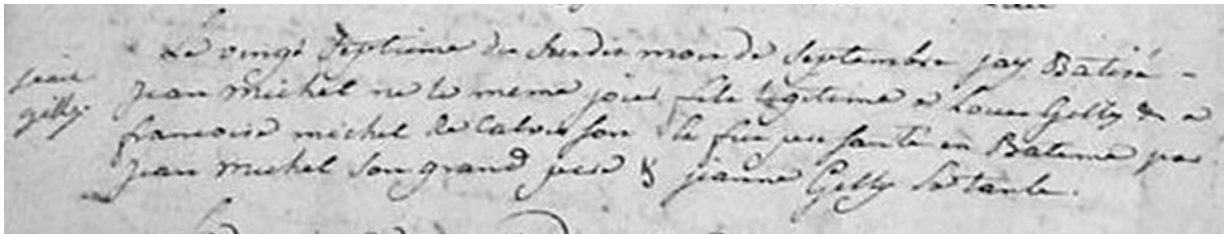 Le vingt septieme du susdit mois de septembre jay Batisé
jean
gilly
jean michel ne le meme jour fils legitime a Louis Gilly & a
francoise michel de Calvisson le fut presenté en Bateme par
jean michel son grand pere & jeanne Gilly sa tante.